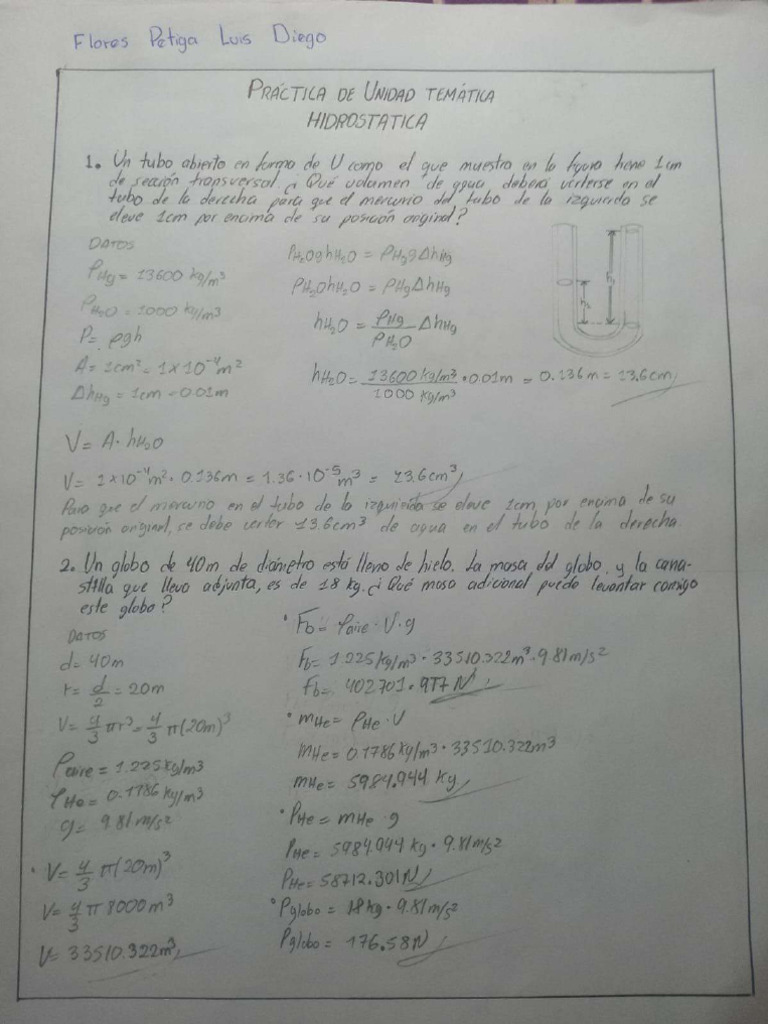 Flores Patiga Luis Diego
PRÁCTICA DE UNIDAD TEMÁTICA
HIDROSTATICA
1. Un tubo abierto en forma de U como el que muestra en la figura tiene 1cm
de sección transversal. ¿Qué volumen de agua deberá verterse en el
tubo de la derecha para que el mercurio del tubo de la izquierda se
eleve 1cm por encima de su posición original?
DATOS
ρHg = 13600 kg/m³
ρH₂O = 1000 kg/m³
P = ρgh
A = 1cm² = 1x10⁻⁴m²
ΔhHg = 1cm = 0.01m
ρH₂OghH₂O = ρHggΔhHg
ρH₂OhH₂O = ρHgΔhHg
hH₂O = ρHg/ρH₂O ΔhHg
hH₂O = 13600 kg/m³ / 1000 kg/m³ · 0.01m = 0.136m = 13.6cm
V = A · hH₂O
V = 1x10⁻⁴m² · 0.136m = 1.36 · 10⁻⁵m³ = 13.6cm³
Para que el mercurio en el tubo de la izquierda se eleve 1cm por encima de su
posición original, se debe verter 13.6cm³ de agua en el tubo de la derecha.
2. Un globo de 40m de diámetro está lleno de hielo. La masa del globo, y la cana-
stilla que lleva adjunta, es de 18 kg. ¿Qué masa adicional puede levantar consigo
este globo?
DATOS
d = 40m
r = d/2 = 20m
V = 4/3 πr³ = 4/3 π(20m)³
ρaire = 1.225 kg/m³
ρHe = 0.1786 kg/m³
g = 9.81 m/s²
• V = 4/3 π(20m)³
V = 4/3 π 8000m³
V = 33510.322m³
• Fb = ρaire · V · g
Fb = 1.225 kg/m³ · 33510.322m³ · 9.81m/s²
Fb = 402701.977 N
• mHe = ρHe · V
mHe = 0.1786 kg/m³ · 33510.322m³
mHe = 5984.944 kg
• PHe = mHe · g
PHe = 5984.944 kg · 9.81m/s²
PHe = 58712.301N
• Pglobo = 18kg · 9.81m/s²
Pglobo = 176.58N